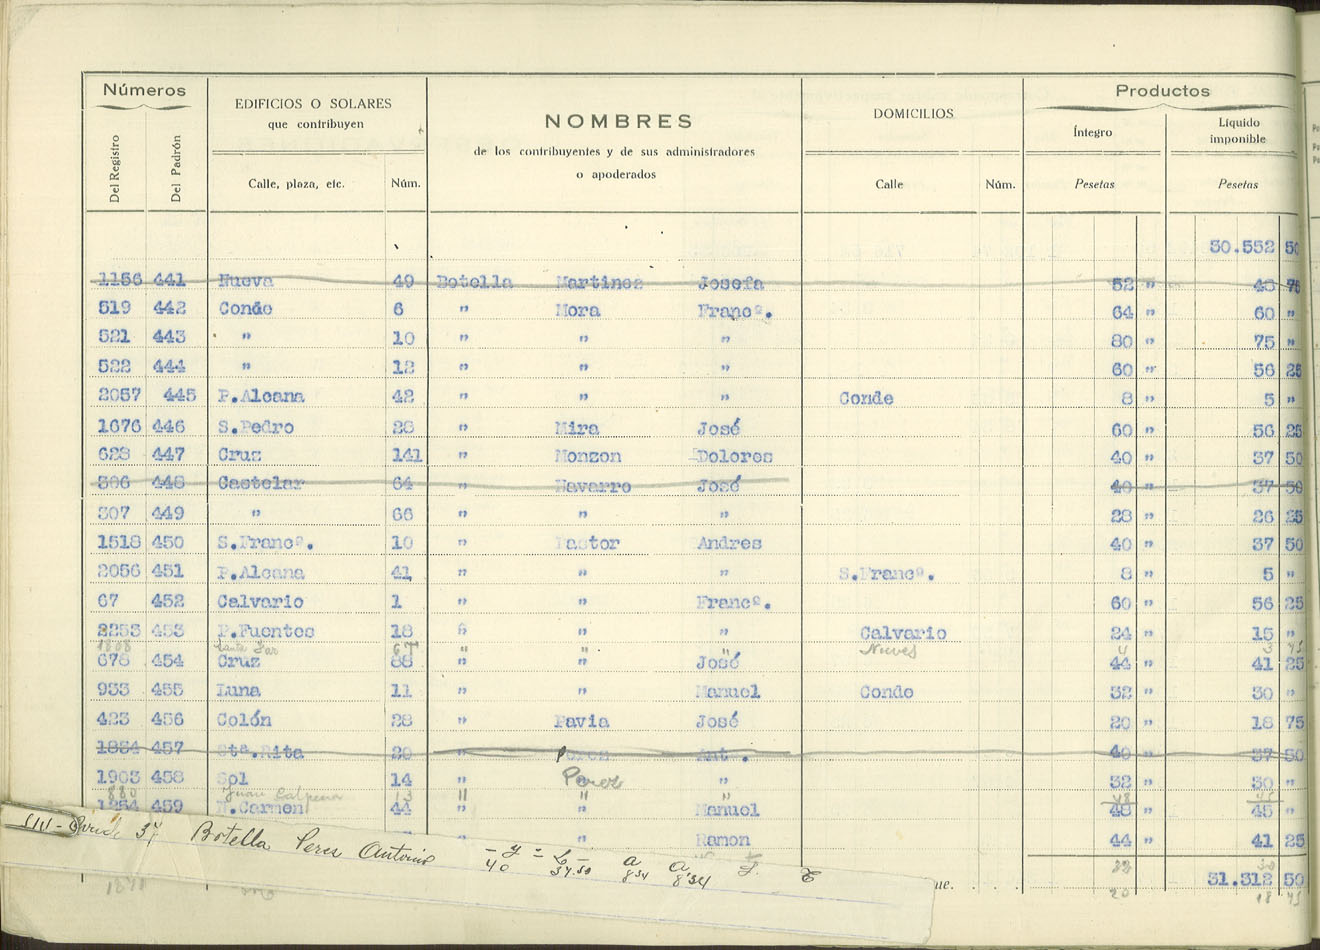 Números
EDIFICIOS O SOLARES
que contribuyen
NOMBRES
de los contribuyentes y de sus administradores
o apoderados
DOMICILIOS
Productos
Íntegro
Líquido
imponible
Del Registro Del Padrón Calle, plaza, etc. Núm. Calle Núm. Pesetas Pesetas
30.552 50
1156 441 Nueva 49 Botella Martinez Josefa 52 " 48 75
519 442 Conde 6 " Mora Francº. 64 " 60 "
521 443 " 10 " " " 80 " 75 "
522 444 " 12 " " " 60 " 56 25
2057 445 P.Alcana 42 " " " Conde 8 " 5 "
1676 446 S.Pedro 28 " Mira José 60 " 56 25
628 447 Cruz 141 " Monzon Dolores 40 " 37 50
306 448 Castelar 64 " Navarro José 40 " 37 50
307 449 " 66 " " " 28 " 26 25
1518 450 S.Francº. 10 " Pastor Andres 40 " 37 50
2056 451 P.Alcana 41 " " " S.Francº. 8 " 5 "
67 452 Calvario 1 " " Francº. 60 " 56 25
2253 453 P.Fuentes 18 " " " Calvario 24 " 15 "
67 " " " Nieves 4 3
676 454 Cruz 88 " " José 44 " 41 25
933 455 Luna 11 " " Manuel Conde 32 " 30 "
423 456 Colón 28 " Pavia José 20 " 18 75
1854 457 Stª.Rita 20 " Perez Ant . 40 " 37 50
1903 458 Sol 14 " Perez " 32 " 30 "
880 Juan Calpena 13 " " " 48 45
1254 459 N.Carmen 44 " " Manuel 48 " 45 "
" " Ramon 44 " 41 25
37 Botella Peres Antonio 40 37.50 8'34 8'34
ue. 31.312 50
20 18 75